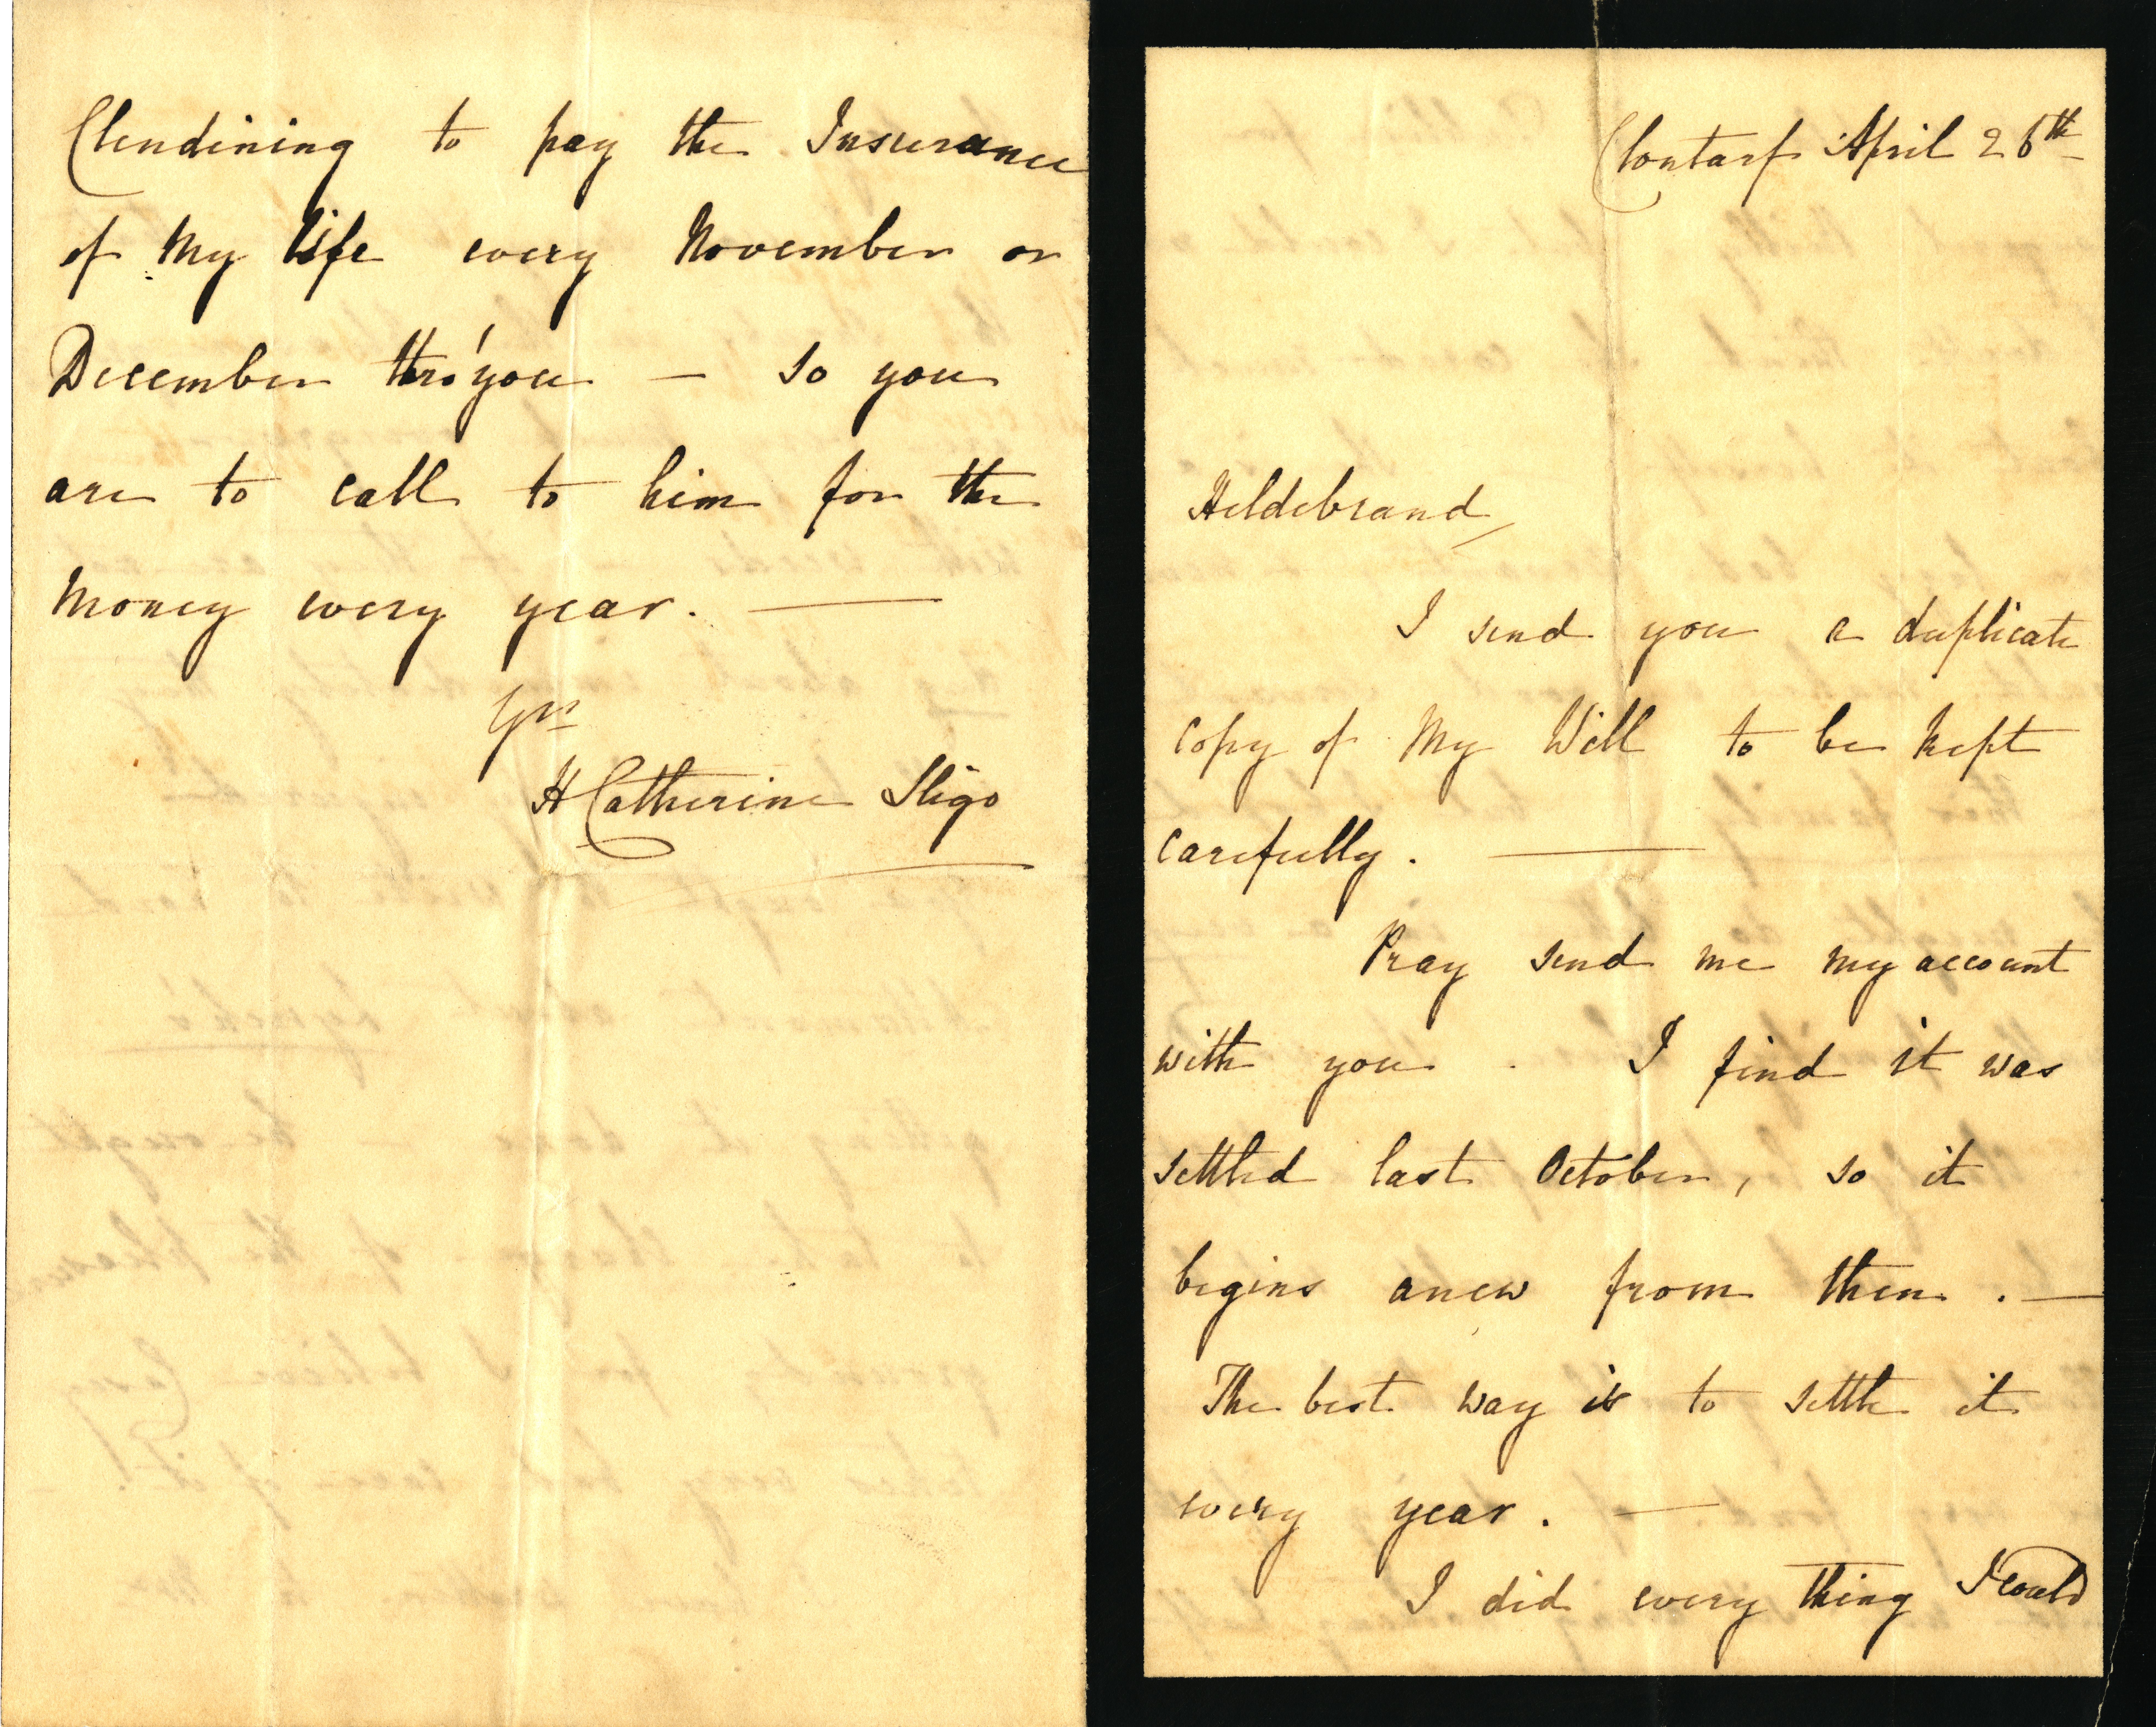 Clendining to pay the Insurance
of My life every November or
December thro' you — so you
are to call to him for the
Money every year. —
Yrs
H Catherine Sligo
Clontarf April 26th
Hildebrand,
I send you a duplicate
Copy of My Will to be kept
carefully. —
Pray send me my account
with you. I find it was
settled last October, so it
begins anew from then. —
The best way is to settle it
every year. —
I did every thing I could